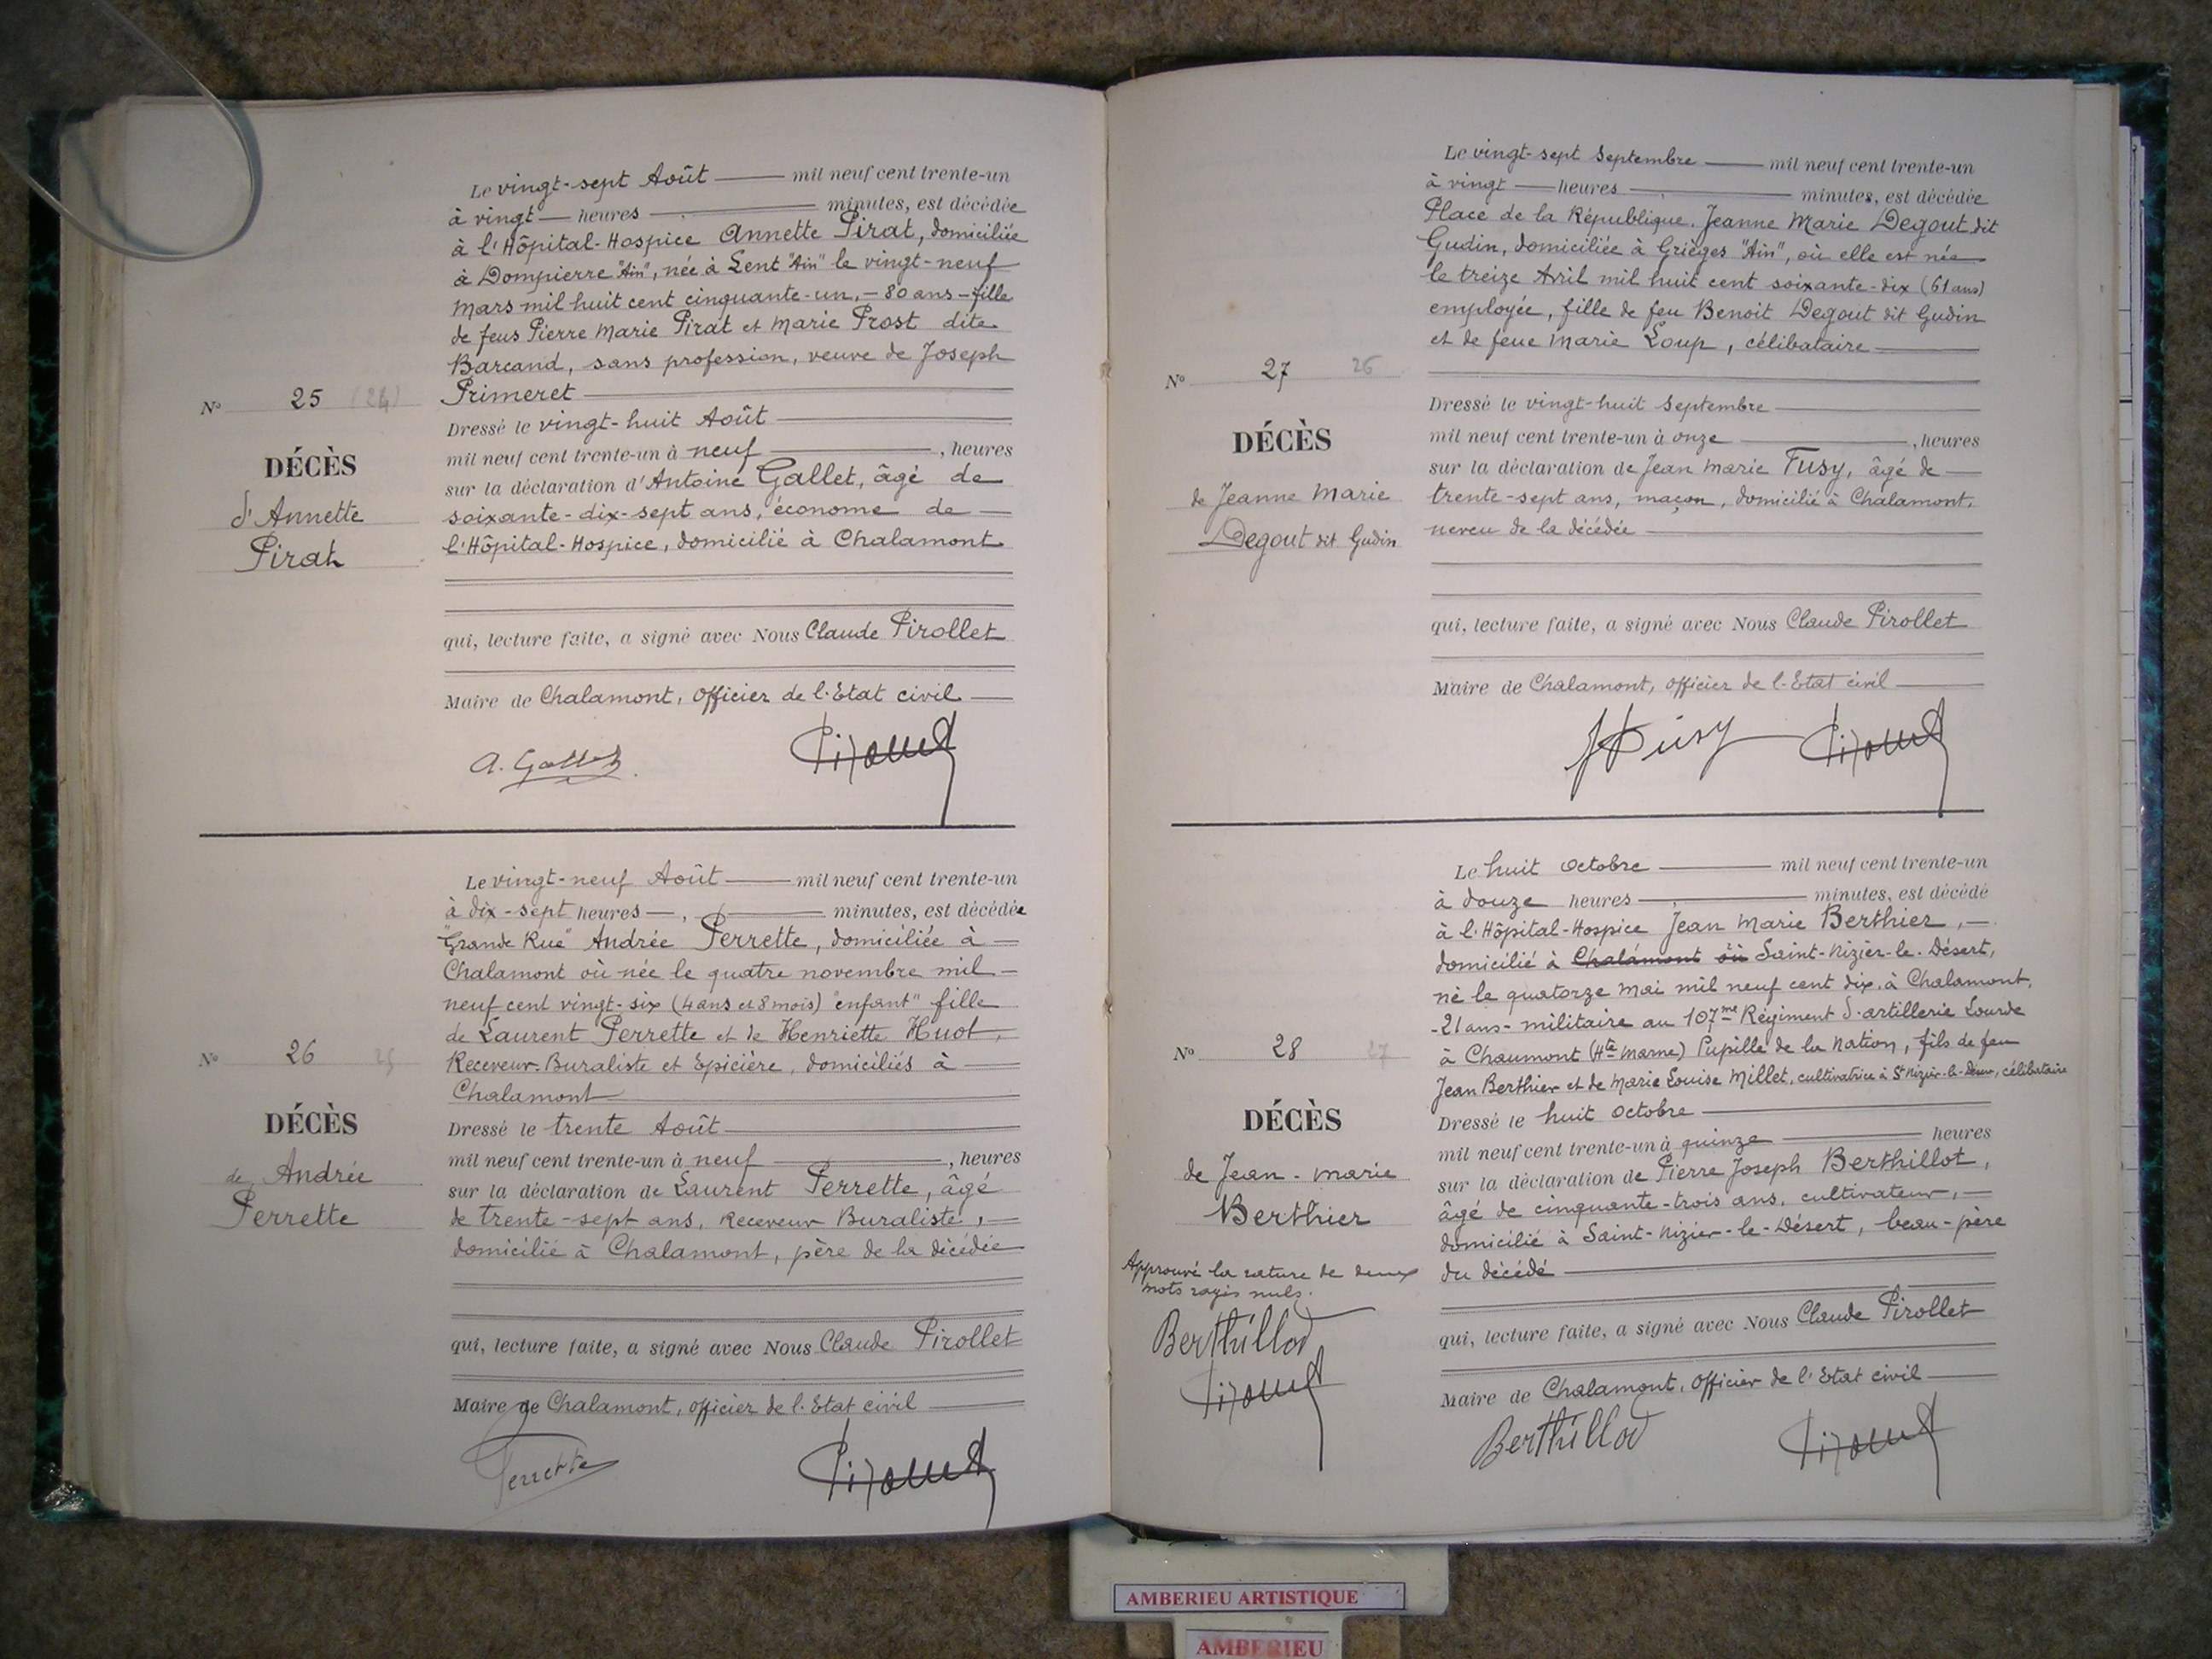 Le vingt-sept Août mil neuf cent trente-un
à vingt heures minutes, est décédée
à l'Hôpital-Hospice Annette Pirat, domiciliée
à Dompierre "Ain", née à Lent "Ain" le vingt-neuf
mars mil huit cent cinquante-un, - 80 ans - fille
de feus Pierre Marie Pirat et Marie Prost dite
Barcand, sans profession, veuve de Joseph
Primeret
N° 25 (24)
DÉCÈS
d'Annette
Pirat
Dressé le vingt-huit Août
mil neuf cent trente-un à neuf , heures
sur la déclaration d'Antoine Gallet, âgé de
soixante-dix-sept ans, économe de
l'Hôpital-Hospice, domicilié à Chalamont
qui, lecture faite, a signé avec Nous Claude Pirollet
Maire de Chalamont, Officier de l'Etat civil
A. Gallet Pirollet
Le vingt-neuf Août mil neuf cent trente-un
à dix-sept heures , minutes, est décédée
"Grande Rue" Andrée Perrette, domiciliée à
Chalamont où née le quatre novembre mil
neuf cent vingt-six (4 ans et 8 mois) "enfant" fille
de Laurent Perrette et de Henriette Huot,
Receveur-Buraliste et Epicière, domiciliés à
Chalamont
N° 26 25
DÉCÈS
de Andrée
Perrette
Dressé le trente Août
mil neuf cent trente-un à neuf , heures
sur la déclaration de Laurent Perrette, âgé
de trente-sept ans, Receveur Buraliste,
domicilié à Chalamont, père de la décédée
qui, lecture faite, a signé avec Nous Claude Pirollet
Maire de Chalamont, officier de l'Etat civil
Perrette Pirollet
Le vingt-sept Septembre mil neuf cent trente-un
à vingt heures minutes, est décédée
Place de la République, Jeanne Marie Degout dit
Gudin, domiciliée à Grièges "Ain", où elle est née
le treize Avril mil huit cent soixante-dix (61 ans)
employée, fille de feu Benoit Degout dit Gudin
et de feue Marie Loup, célibataire
N° 27 26
DÉCÈS
de Jeanne Marie
Degout dit Gudin
Dressé le vingt-huit Septembre
mil neuf cent trente-un à onze , heures
sur la déclaration de Jean Marie Fusy, âgé de
trente-sept ans, maçon, domicilié à Chalamont,
neveu de la décédée
qui, lecture faite, a signé avec Nous Claude Pirollet
Maire de Chalamont, officier de l'Etat civil
Fusy Pirollet
Le huit Octobre mil neuf cent trente-un
à douze heures , minutes, est décédé
à l'Hôpital-Hospice Jean Marie Berthier,
domicilié à Chalamont où Saint-Nizier-le-Désert,
né le quatorze Mai mil neuf cent dix, à Chalamont,
-21 ans- militaire au 107me Régiment d'artillerie Lourde
à Chaumont (Hte Marne) Pupille de la Nation, fils de feu
Jean Berthier et de Marie Louise Millet, cultivatrice à St Nizier-le-Désert, célibataire
N° 28 27
DÉCÈS
de Jean-Marie
Berthier
Approuvé la rature de deux
mots rayés nuls.
Berthillot
Pirollet
Dressé le huit Octobre
mil neuf cent trente-un à quinze heures
sur la déclaration de Pierre Joseph Berthillot,
âgé de cinquante-trois ans, cultivateur,
domicilié à Saint-Nizier-le-Désert, beau-père
du décédé
qui, lecture faite, a signé avec Nous Claude Pirollet
Maire de Chalamont, Officier de l'Etat civil
Berthillot Pirollet
AMBERIEU ARTISTIQUE
AMBERIEU